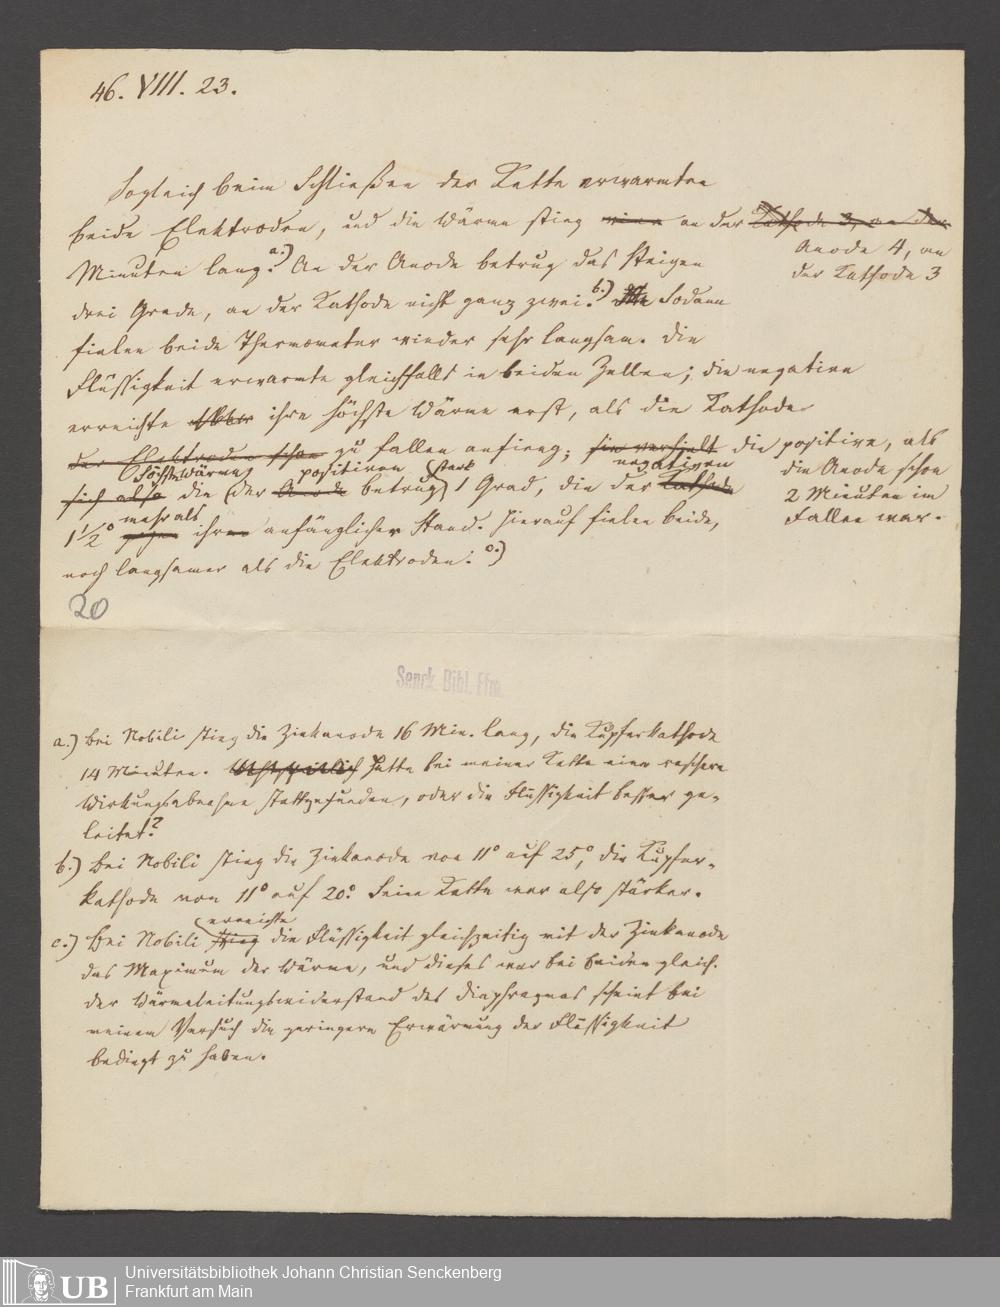 46. VIII. 23.
Sogleich beim Schließen der Kette erwärmten
beide Elektroden, und die Wärme stieg eine an der Kathode 3, an der
Anode 4, an
der Kathode 3
Minuten lang. a.) An der Anode betrug das Steigen
drei Grade, an der Kathode nicht ganz zwei. b.) Sodann
fielen beide Thermometer wieder sehr langsam. Die
Flüssigkeit erwärmte gleichfalls in beiden Zellen; die negative
erreichte ihre höchste Wärme erst, als die Kathode
der Elektroden schon zu fallen anfieng; sie verhielt die positive, als
die Anode schon
2 Minuten im
Fallen war.
Höchstwärme positiven stark negativen
sich also die der Anode betrug 1 Grad, die der Kathode
mehr als
1 1/2° ihren anfänglicher Stand. Hierauf fielen beide,
noch langsamer als die Elektroden. c.)
20
Senck. Bibl. Ffm.
a.) Bei Nobili stieg die Zinkanode 16 Min. lang, die Kupferkathode
14 Minuten. Hatte bei meiner Kette eine raschere
Wirkungsabnahme stattgefunden, oder die Flüssigkeit besser ge-
leitet?
b.) Bei Nobili stieg die Zinkanode von 11° auf 25°, die Kupfer-
kathode von 11° auf 20°. Seine Kette war also stärker.
erreichte
c.) Bei Nobili stieg die Flüssigkeit gleichzeitig mit der Zinkanode
das Maximum der Wärme, und dieses war bei beiden gleich.
Der Wärmeleitungswiderstand des Diaphragmas scheint bei
meinem Versuch die geringere Erwärmung der Flüssigkeit
bedingt zu haben.
UB
Universitätsbibliothek Johann Christian Senckenberg
Frankfurt am Main